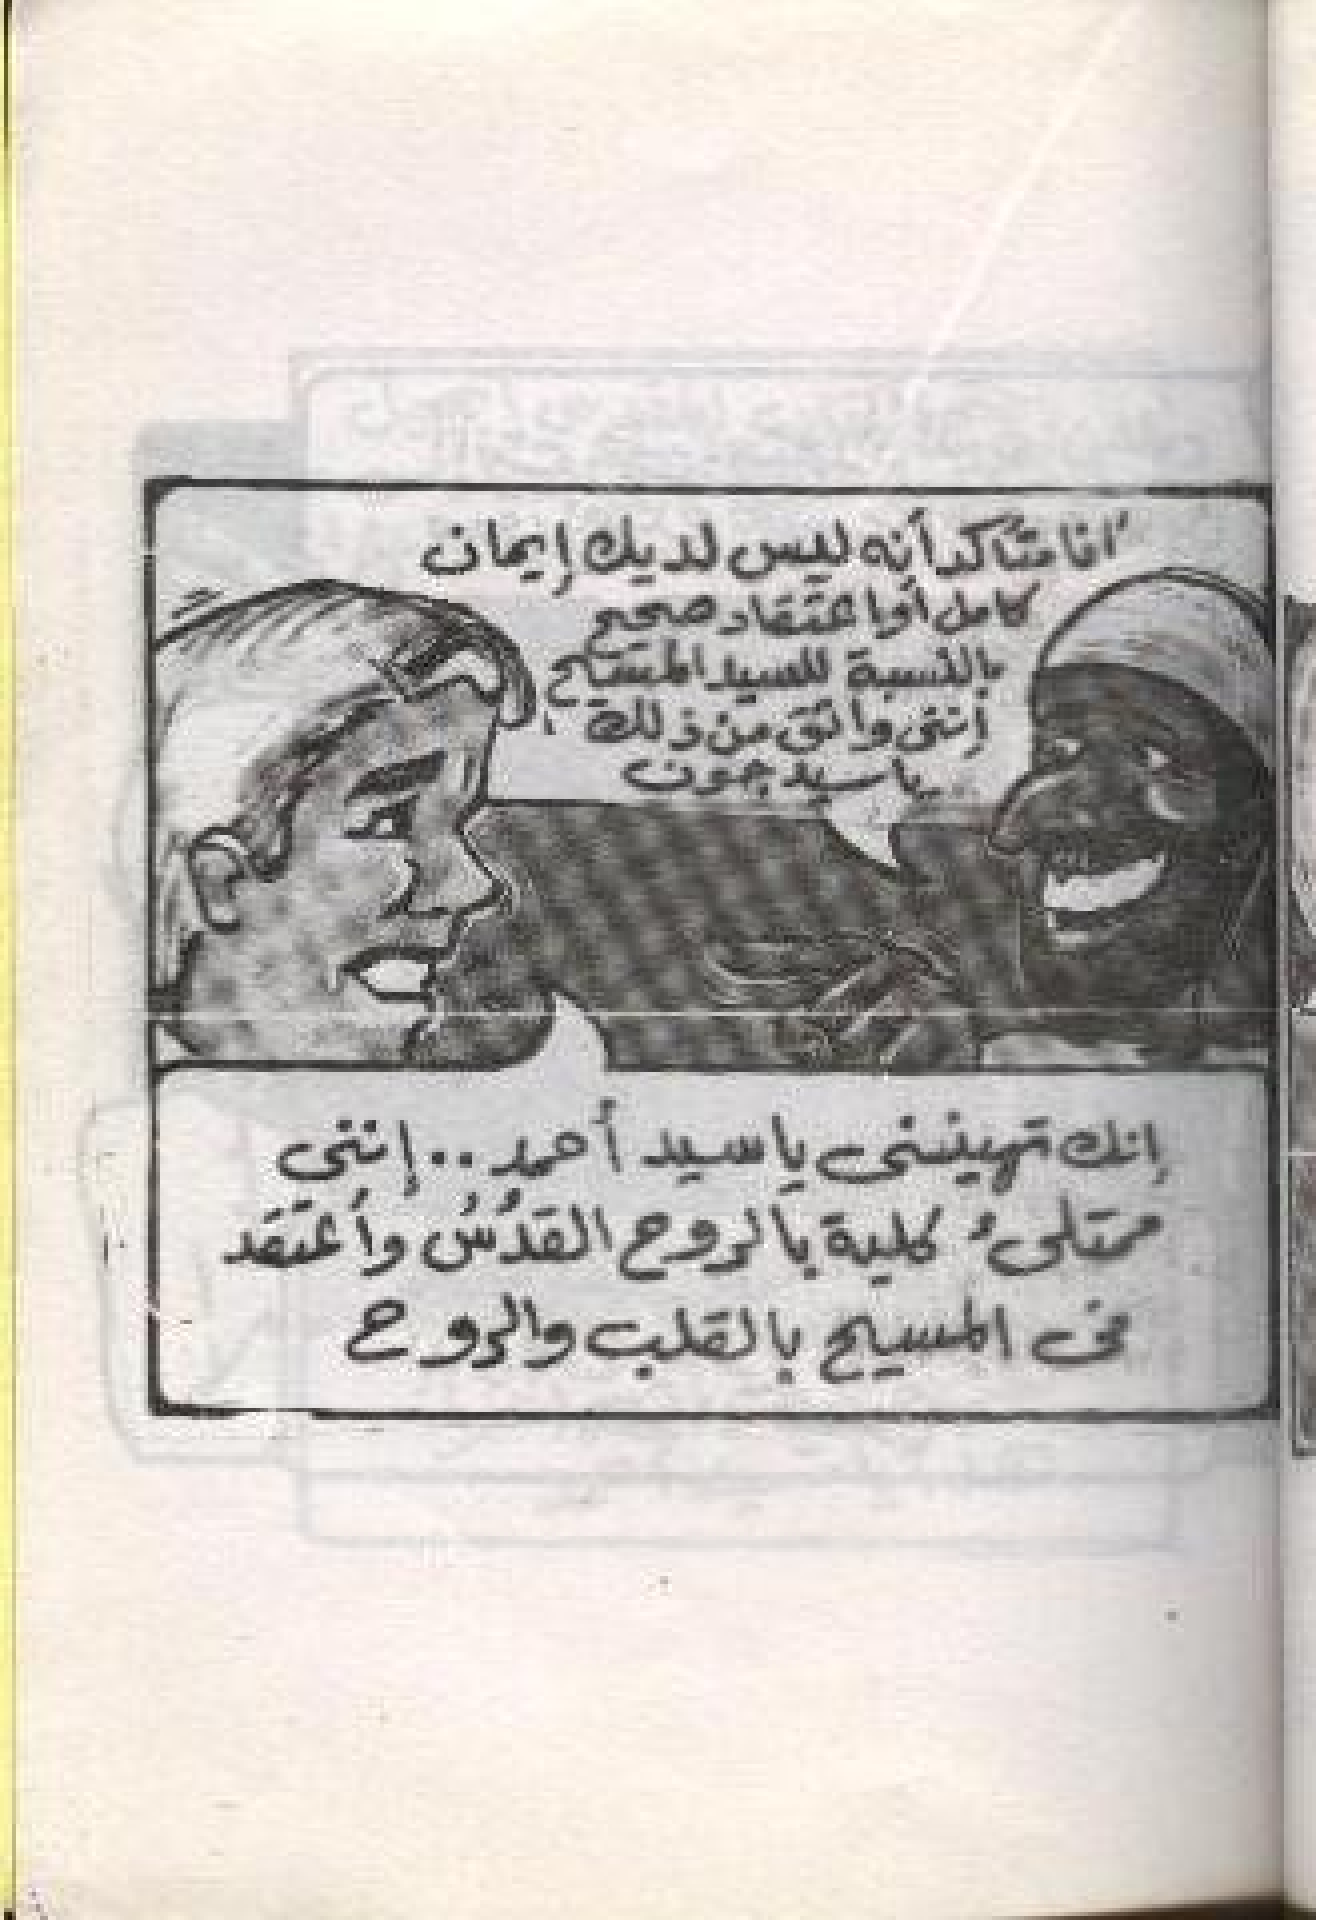 أنا متأكد أنه ليس لديك إيمان
كامل أو اعتقاد صحيح
بالنسبة للسيد المسيح
إننى واثق من ذلك
يا سيد جون
إنك تهيننى يا سيد أحمد .. إننى
ممتلىءُ كلية بالروح القدُسُ وأعتقد
فى المسيح بالقلب والروح